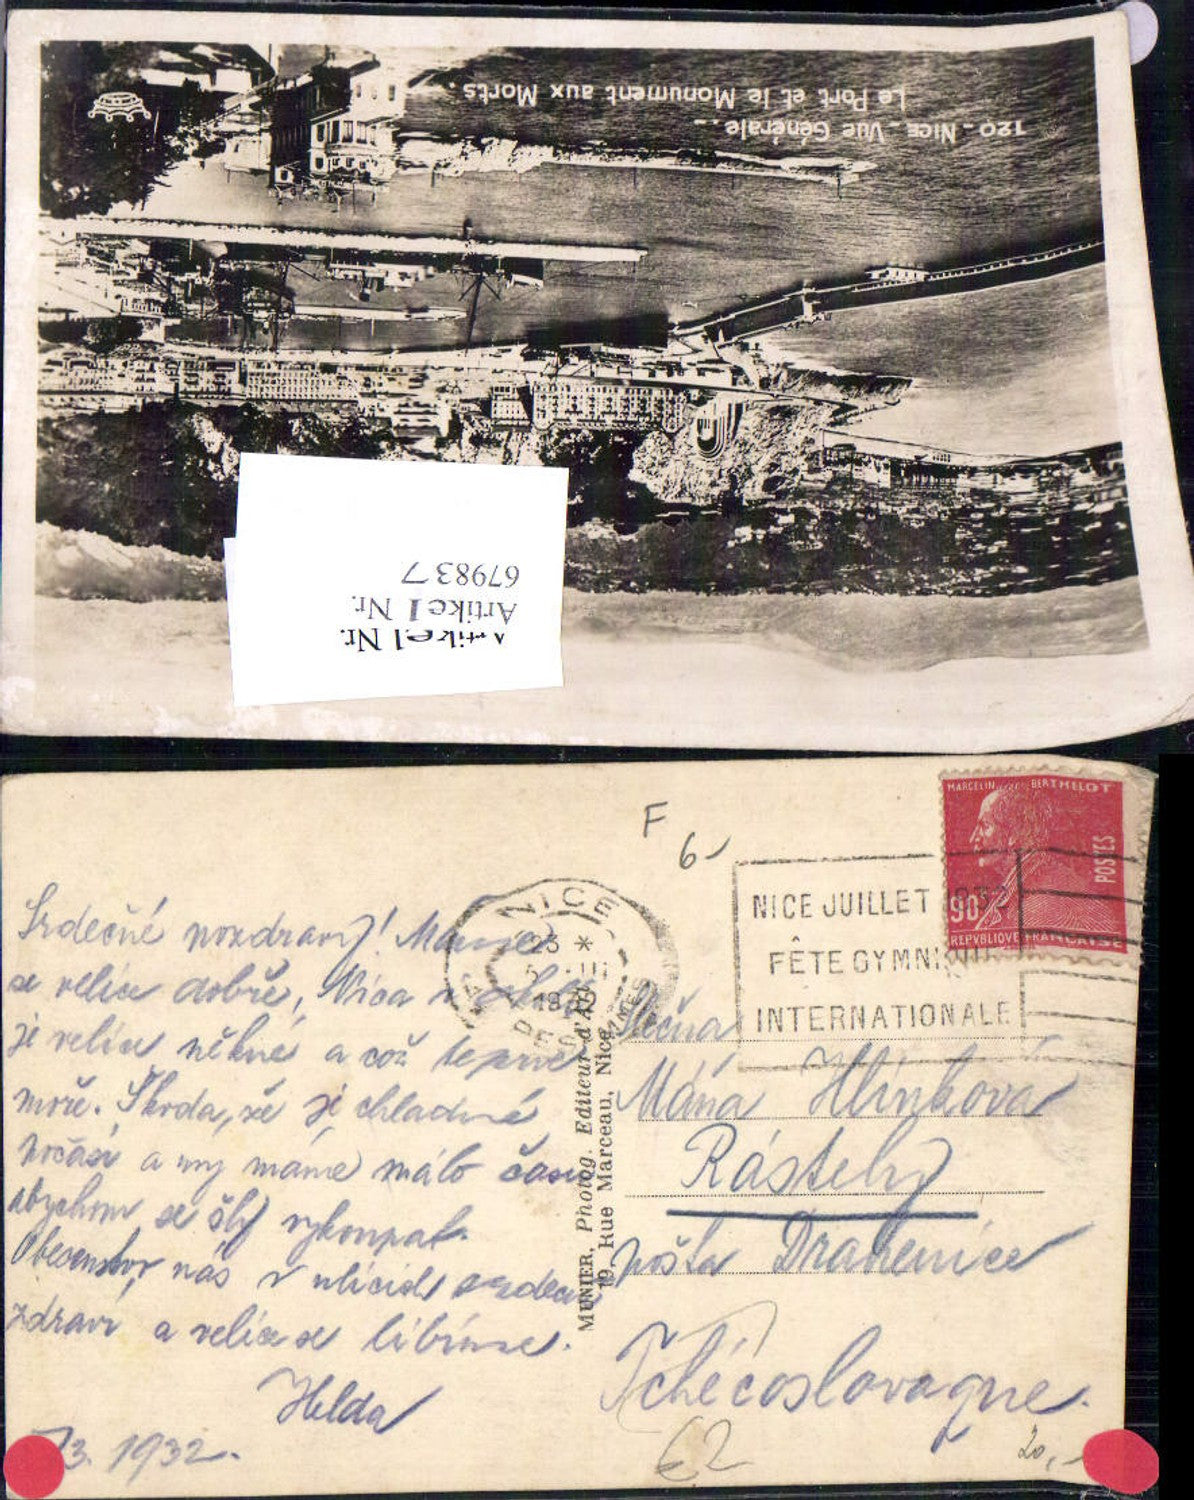 120 _ Nice _ Vue Générale. _
Le Port et le Monument aux Morts.
Artikel Nr.
Artikel Nr.
679837
F
6-
NICE
23 *
1932
NICE JUILLET 1932
FÊTE GYMNIQUE
INTERNATIONALE
MARCELIN BERTHELOT
POSTES
90c
REPUBLIQUE FRANCAISE
Srdečné pozdravy! Máme
se velice dobře, Nica v
je velice pěkné a což teprve
moře. Škoda, že je chladné
počasí a my máme málo času
abychom se šly vykoupat.
Obecenstvo nás v ulicích srdečně
zdraví a velice se líbíme.
Helda
7/3. 1932.
MUNIER, Photog. Editeur d'Art
19, Rue Marceau, Nice
Slečna
Mána Hlinkova
Rástely
pošta Drahenice
Tchécoslovaque.
62
20,-